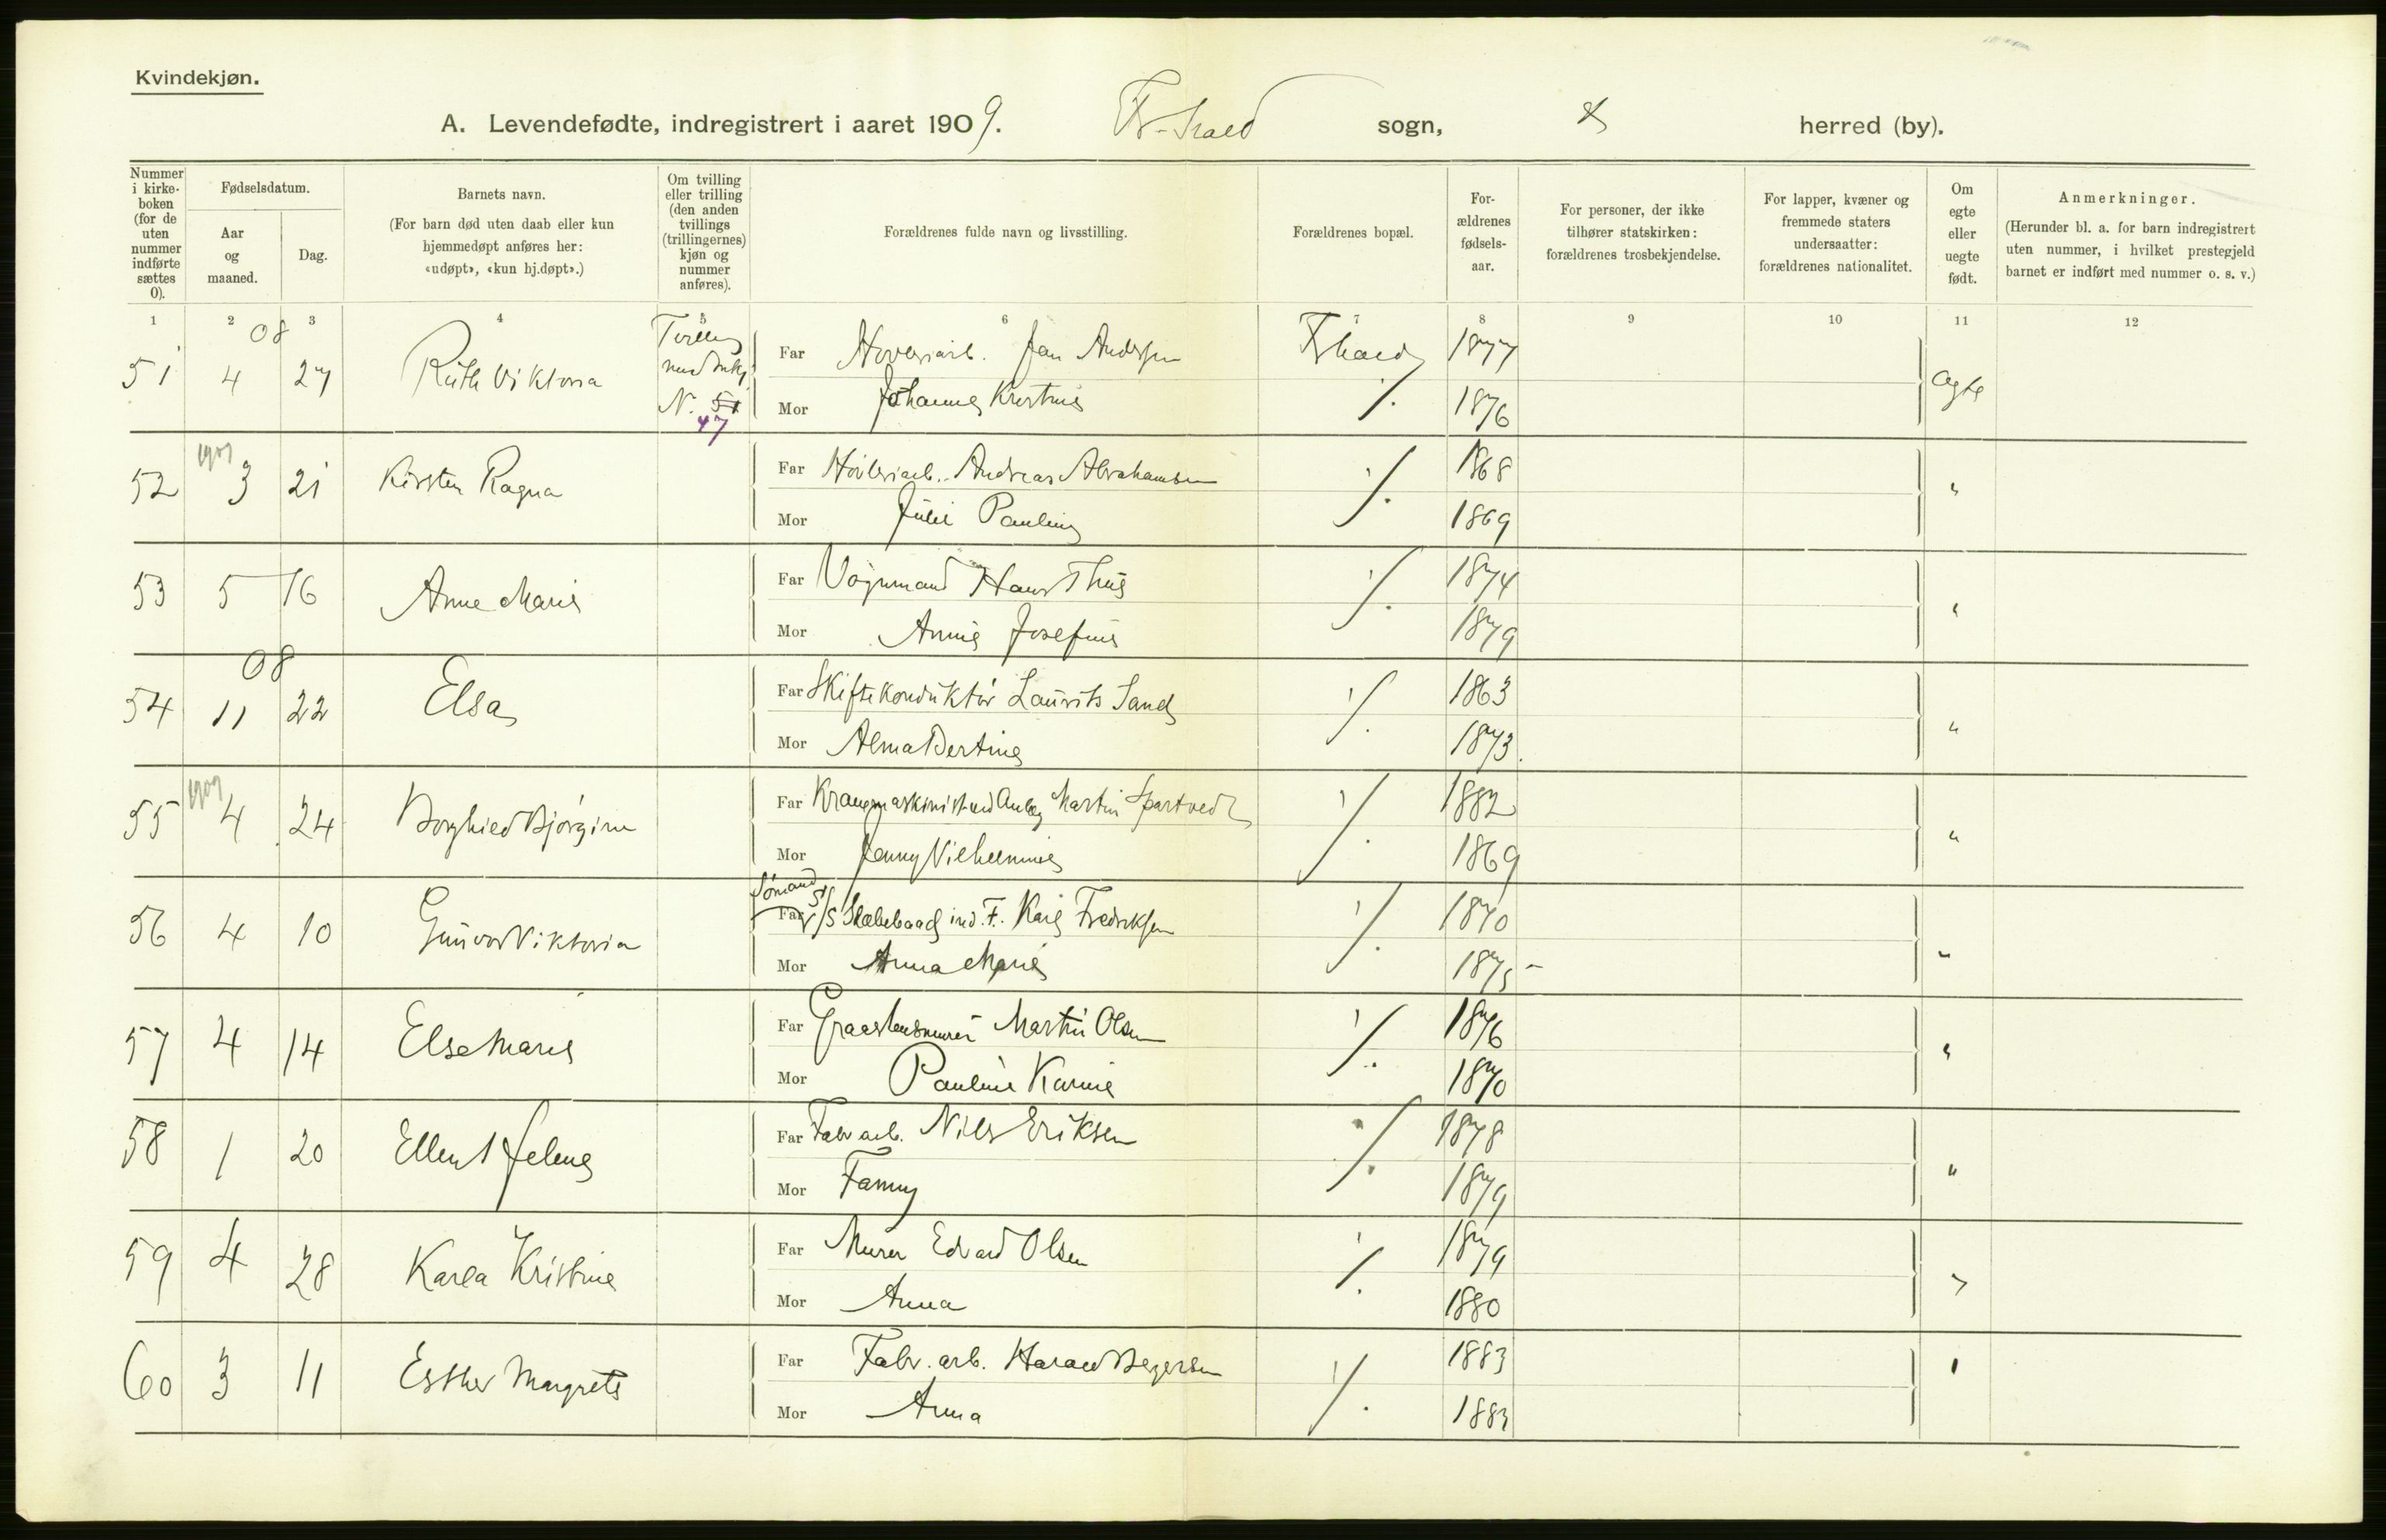 Kvindekjøn.
A. Levendefødte, indregistrert i aaret 1909. Fr-hald sogn, & herred (by).
Nummer i kirke-boken (for de uten nummer indførte sættes 0).
Fødselsdatum.
Aar og maaned.
Dag.
Barnets navn.
(For barn død uten daab eller kun hjemmedøpt anføres her: «udøpt», «kun hj.døpt».)
Om tvilling eller trilling (den anden tvillings (trillingernes) kjøn og nummer anføres).
Forældrenes fulde navn og livsstilling.
Forældrenes bopæl.
For-ældrenes fødsels-aar.
For personer, der ikke tilhører statskirken: forældrenes trosbekjendelse.
For lapper, kvæner og fremmede staters undersaatter: forældrenes nationalitet.
Om egte eller uegte født.
Anmerkninger.
(Herunder bl. a. for barn indregistrert uten nummer, i hvilket prestegjeld barnet er indført med nummer o. s. v.)
1 2 3 4 5 6 7 8 9 10 11 12
08
51 4 27 Ruth Viktoria N. 51 47 Far Høvleriarb. Jan Andersen Frhald 1877 egte
Mor Johanne Kristine ·/. 1876
1909
52 3 21 Kirsten Ragna Far Høvleriarb. Andreas Abrahamsen ·/. 1868 "
Mor Julie Pauline 1869
53 5 16 Anne Marie Far Vognmand Hans Thue ·/. 1874 "
Mor Annie Josefine 1879
08
54 11 22 Elsa Far Skiftekonduktør Laurits Sand ·/. 1863 "
Mor Alma Bertine 1873.
1909
55 4 24 Borghild Bjørgine Far Martin Spartvedt ·/. 1882 "
Mor Jenny Vilhelmine 1869
Sømand
56 4 10 Gunvor Viktoria Far S/S ind. F. Karl Fredriksen ·/. 1870 "
Mor Anna Marie 1875 -
57 4 14 Else Marie Far Graastensmurer Martin Olsen ·/. 1876 "
Mor Pauline Karine 1870
58 1 20 Ellen Helene Far Fabr arb. Nils Eriksen ·/. 1878 "
Mor Fanny 1879
59 4 28 Karla Kristine Far Murer Edvard Olsen ·/. 1879 "
Mor Anna 1880
60 3 11 Esther Margrete Far Fabr. arb. Harald Begersen ·/. 1883 "
Mor Anna 1883